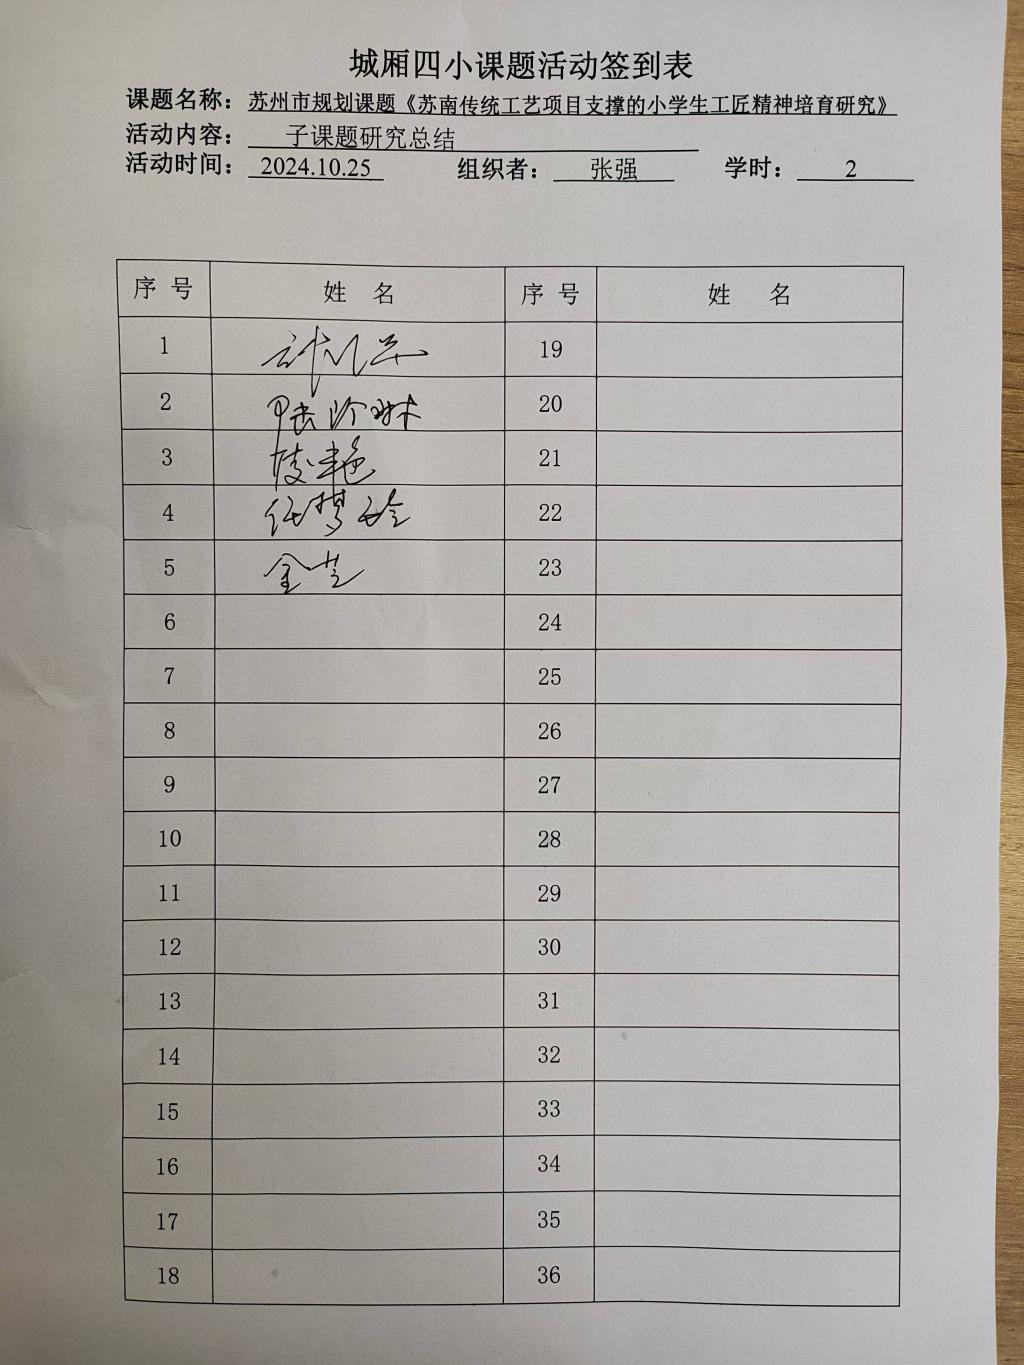 城厢四小课题活动签到表
课题名称：苏州市规划课题《苏南传统工艺项目支撑的小学生工匠精神培育研究》
活动内容： 子课题研究总结
活动时间： 2024.10.25 组织者： 张强 学时： 2
序 号 姓 名 序 号 姓 名
1 19
2 20
3 21
4 任梦玲 22
5 金芝 23
6 24
7 25
8 26
9 27
10 28
11 29
12 30
13 31
14 32
15 33
16 34
17 35
18 36